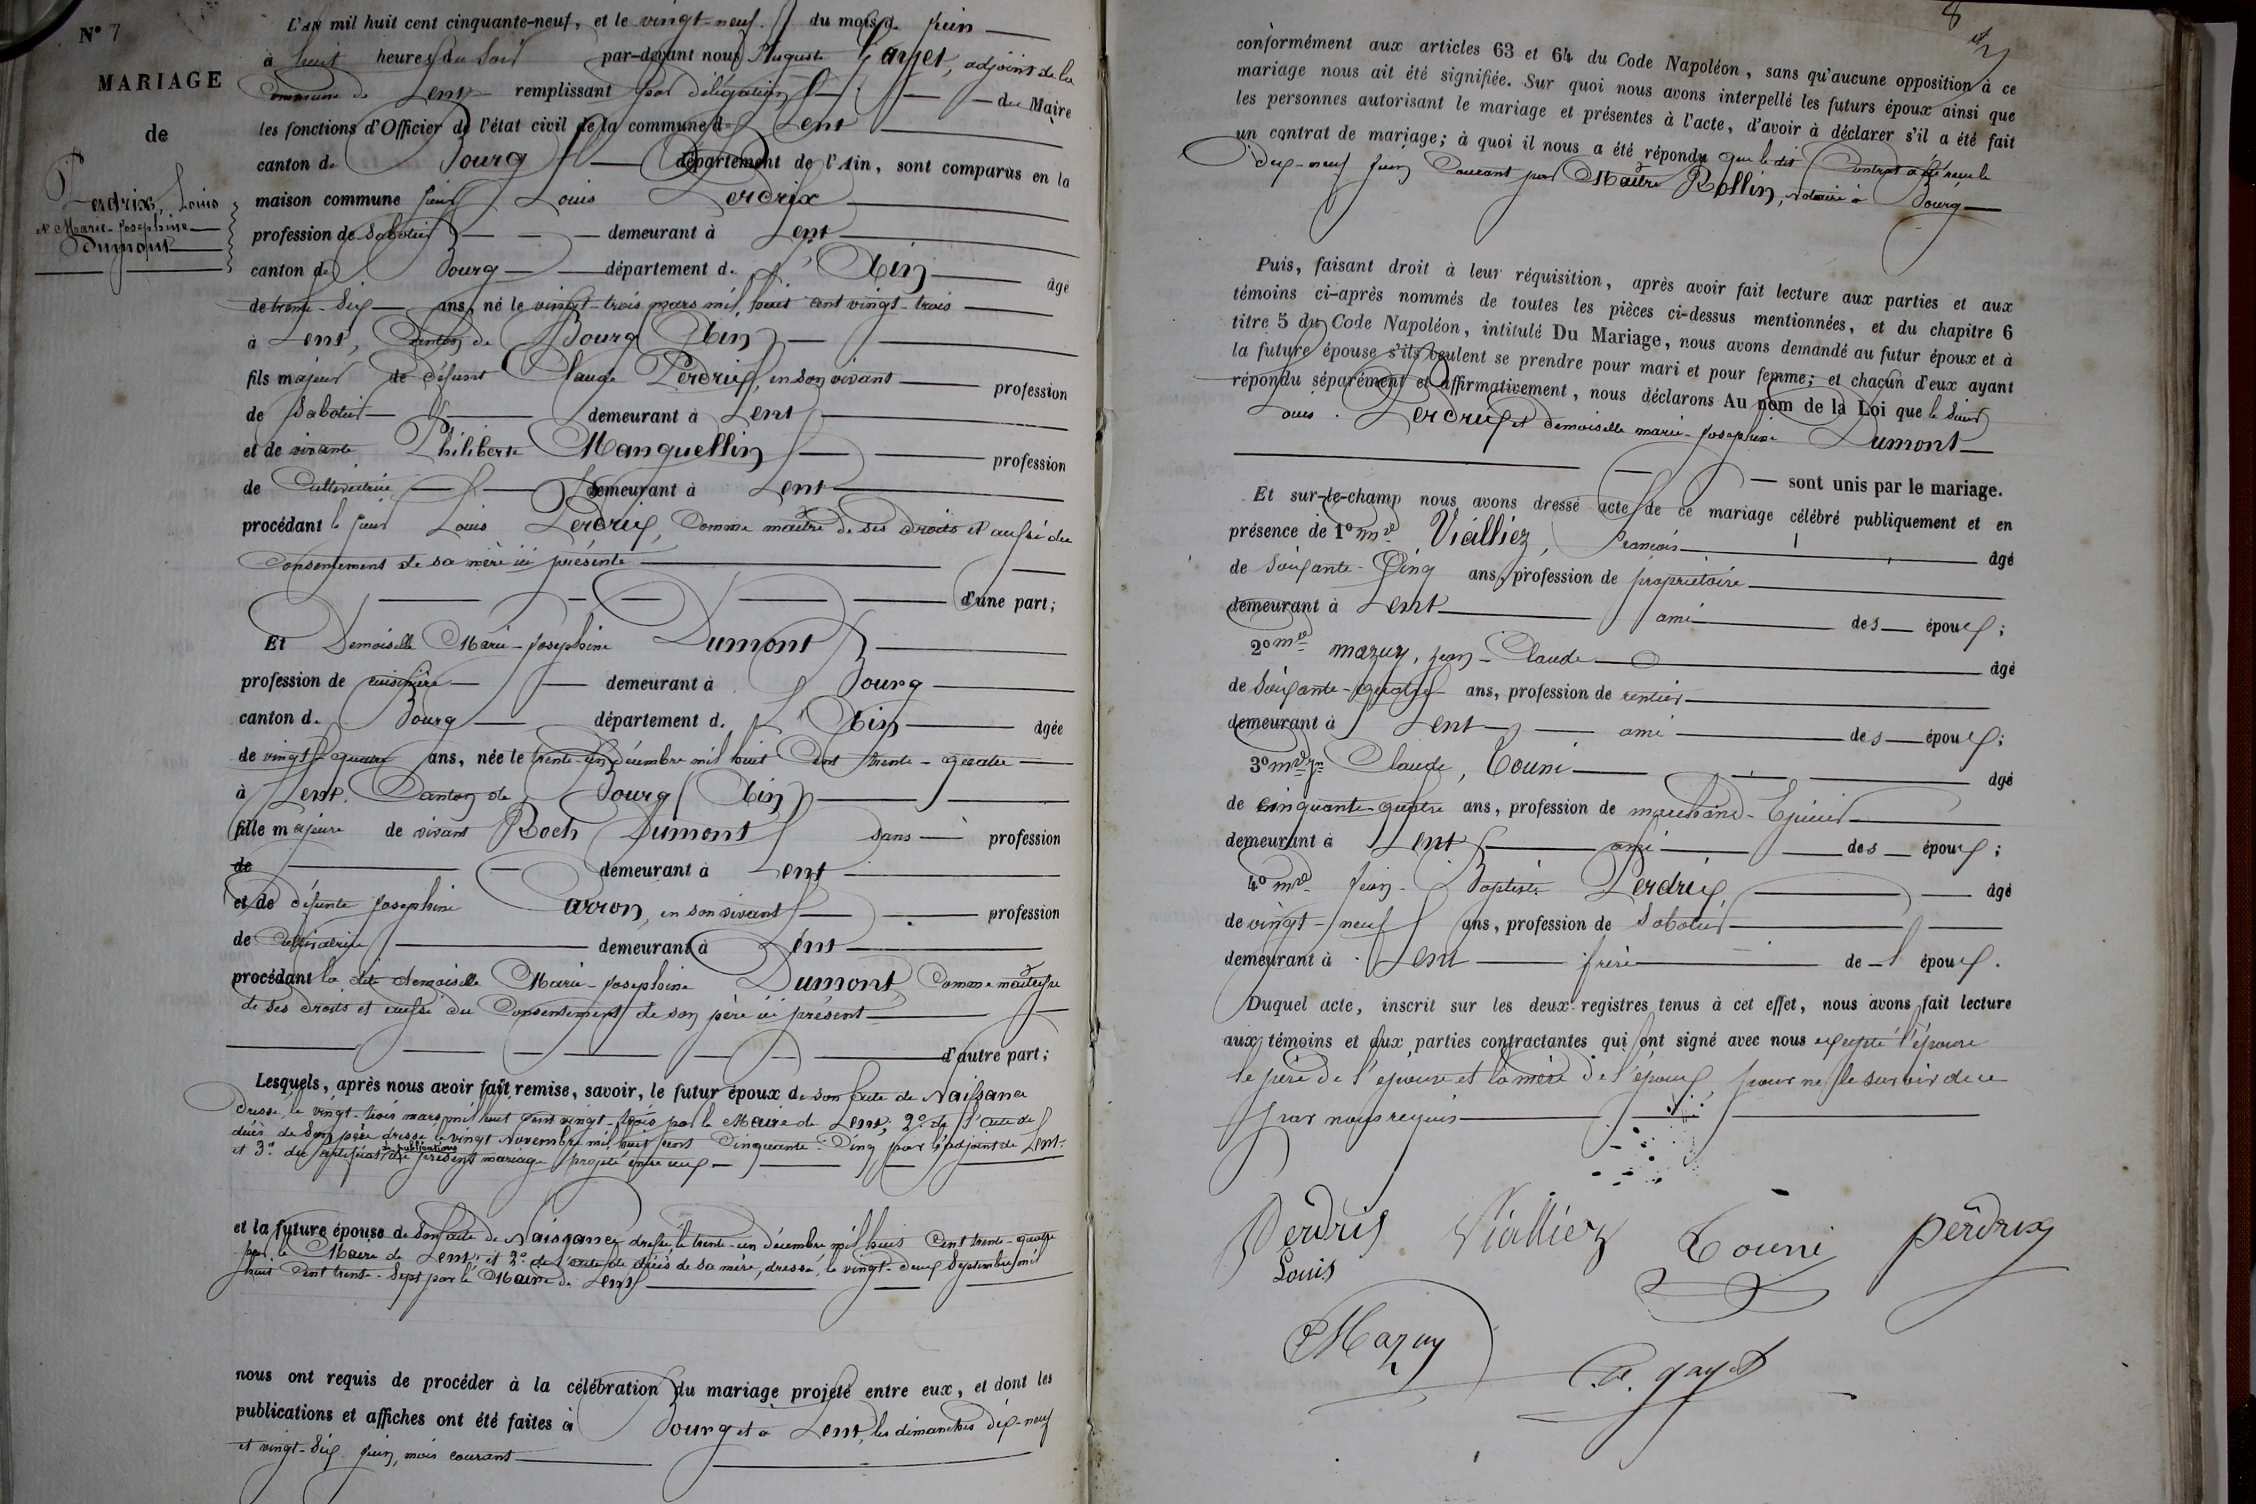 N° 7
MARIAGE
de
Perdrix, Louis
et Marie-Josephine
Dumont
L'AN mil huit cent cinquante-neuf, et le vingt-neuf du mois de juin
à huit heures du soir par-devant nous Auguste Gayet, adjoint de la
Commune de Lent remplissant par délégation du Maire
les fonctions d'Officier de l'état civil de la commune de Lent
canton de Bourg département de l'Ain, sont comparus en la
maison commune sieur Louis Perdrix
profession de sabotier demeurant à Lent
canton de Bourg département de l'Ain âgé
de trente-six ans, né le vingt-trois mars mil huit cent vingt-trois
à Lent, Canton de Bourg (Ain)
fils majeur de défunt Claude Perdrix, en son vivant profession
de sabotier demeurant à Lent
et de vivante Philiberte Manquellin profession
de Cultivatrice demeurant à Lent
procédant le sieur Louis Perdrix, Comme maître de ses droits et aussi du
Consentement de sa mère ici présente
d'une part;
Et Demoiselle Marie-Josephine Dumont
profession de cuisinière demeurant à Bourg
canton de Bourg département de l'Ain âgée
de vingt-quatre ans, née le trente-un décembre mil huit Cent trente-quatre
à Lent, Canton de Bourg (Ain)
fille majeure de vivant Roch Dumont sans profession
de demeurant à Lent
et de défunte Josephine Carron, en son vivant profession
de Cultivatrice demeurant à Lent
procédant la dite demoiselle Marie-Josephine Dumont, Comme maîtresse
de ses droits et aussi du Consentement de son père ici présent
d'autre part;
Lesquels, après nous avoir fait remise, savoir, le futur époux de son Acte de Naissance
dressé, le vingt-trois mars mil huit Cent vingt-trois par le Maire de Lent; 2° de l'acte de
décès de son père dressé le vingt Novembre mil huit cent Cinquante-Cinq par l'adjoint de Lent
et 3° du certificat de publications du présent mariage projeté entre eux
et la future épouse de son acte de Naissance dressé, le trente-un décembre mil huit Cent trente-quatre
par le Maire de Lent et 2° de l'acte de décès de sa mère, dressé, le vingt-deux Septembre mil
huit Cent trente-Sept par le Maire de Lent
nous ont requis de procéder à la célébration du mariage projeté entre eux, et dont les
publications et affiches ont été faites à Bourg et à Lent, les dimanches dix-neuf
et vingt-six juin, mois courant
conformément aux articles 63 et 64 du Code Napoléon, sans qu'aucune opposition à ce
mariage nous ait été signifiée. Sur quoi nous avons interpellé les futurs époux ainsi que
les personnes autorisant le mariage et présentes à l'acte, d'avoir à déclarer s'il a été fait
un contrat de mariage; à quoi il nous a été répondu que le dit Contrat a été reçu le
dix-neuf juin Courant par Maître Rollin, notaire à Bourg
Puis, faisant droit à leur réquisition, après avoir fait lecture aux parties et aux
témoins ci-après nommés de toutes les pièces ci-dessus mentionnées, et du chapitre 6
titre 5 du Code Napoléon, intitulé Du Mariage, nous avons demandé au futur époux et à
la future épouse s'ils veulent se prendre pour mari et pour femme; et chacun d'eux ayant
répondu séparément et affirmativement, nous déclarons Au nom de la Loi que le Sieur
Louis Perdrix et demoiselle marie-Josephine Dumont
sont unis par le mariage.
Et sur-le-champ nous avons dressé acte de ce mariage célébré publiquement et en
présence de 1° Vialliez, francois âgé
de Soixante-Cinq ans, profession de propriétaire
demeurant à Lent ami des époux;
2° mazuy, jean-Claude âgé
de Soixante-quatre ans, profession de rentier
demeurant à Lent ami des époux;
3° Claude, Touni âgé
de cinquante-quatre ans, profession de marchand-Epicier
demeurant à Lent ami des époux;
4° Jean-Baptiste Perdrix, âgé
de vingt-neuf ans, profession de Sabotier
demeurant à Lent frère de l'époux.
Duquel acte, inscrit sur les deux registres tenus à cet effet, nous avons fait lecture
aux témoins et aux parties contractantes qui ont signé avec nous excepté l'épouse
le père de l'épouse et la mère de l'époux, pour ne le savoir de ce
par nous requis
Perdrix Vialliez Touni perdrix
Louis
Mazuy C. A. gayet